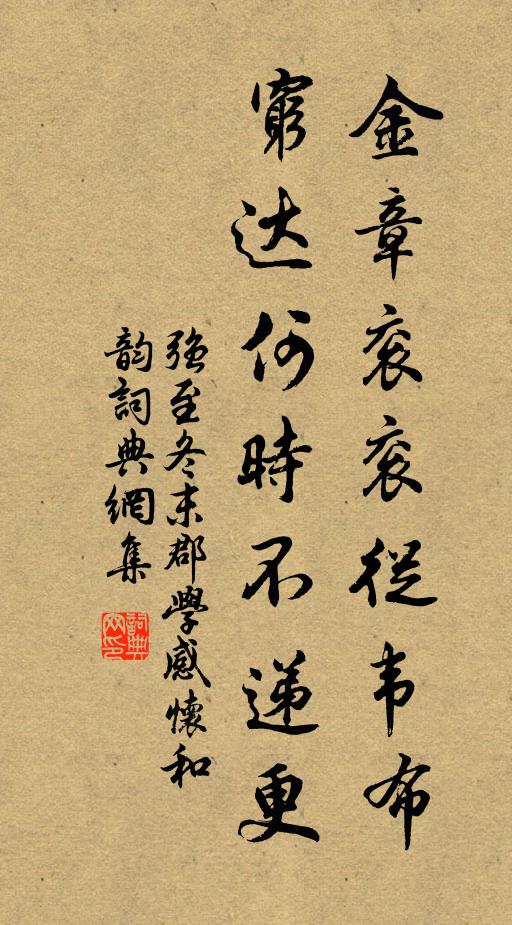 金章衮衮從韦布
窮达何時不递更
强至冬末郡學感懷和
韵詞典網集
詞典
网印